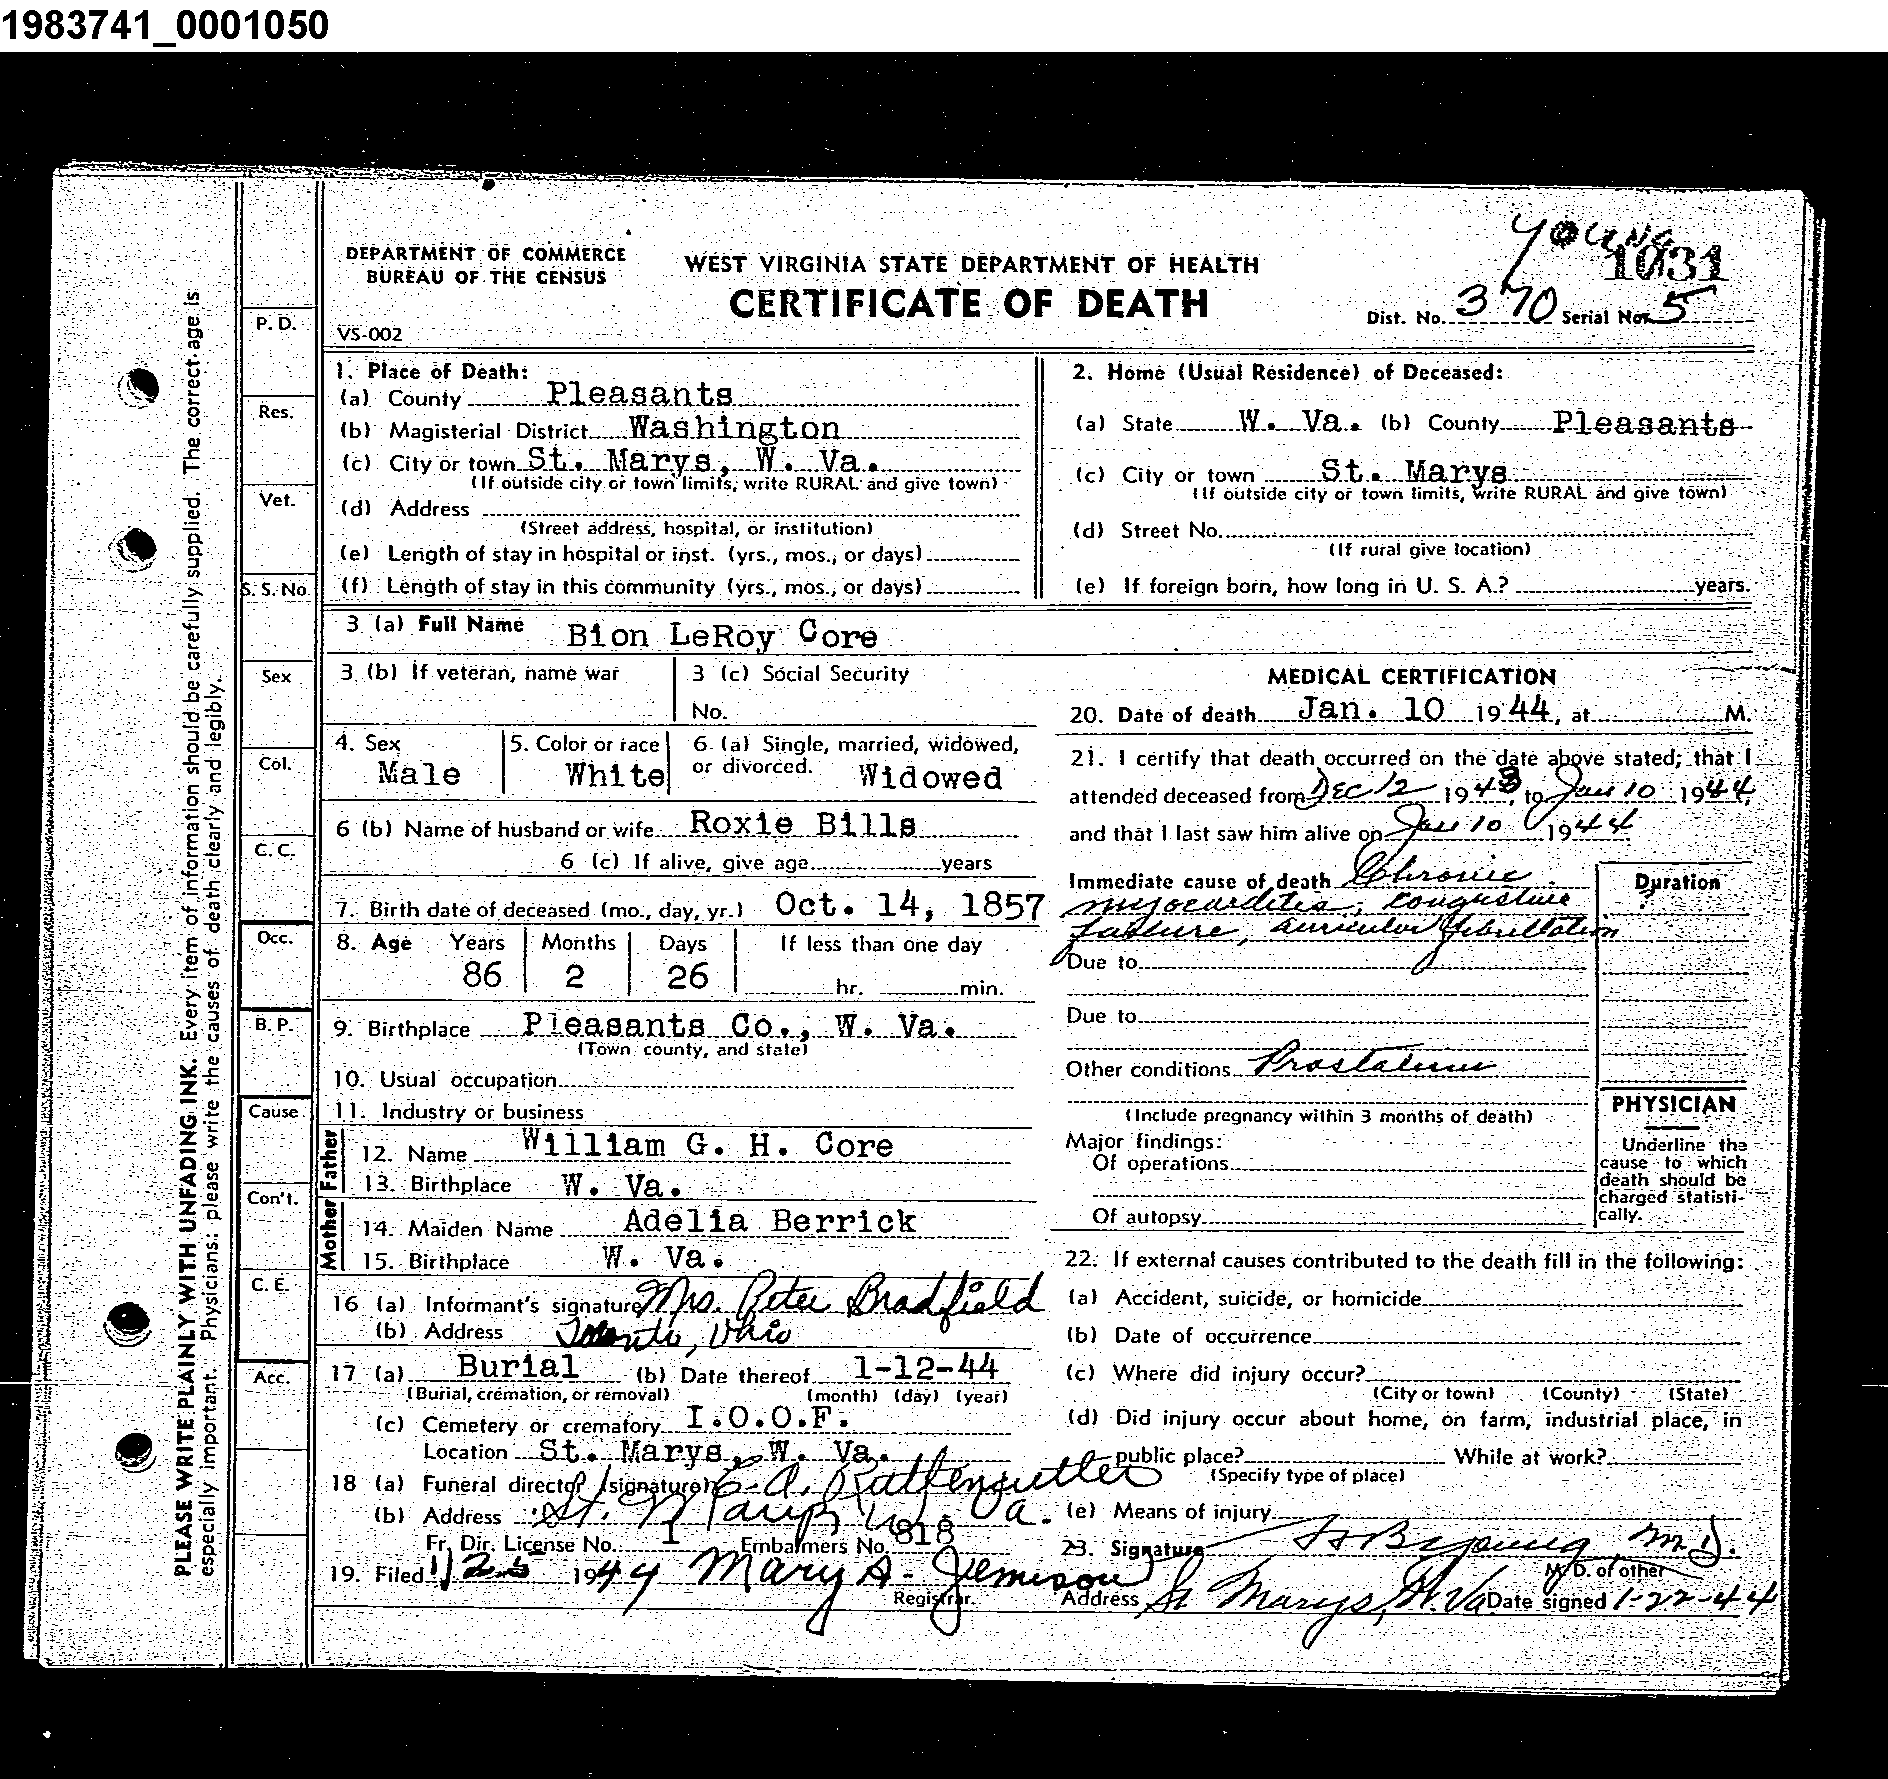 1983741_0001050
YOUNG
1031
DEPARTMENT OF COMMERCE
BUREAU OF THE CENSUS
WEST VIRGINIA STATE DEPARTMENT OF HEALTH
CERTIFICATE OF DEATH
Dist. No. 370 Serial No. 5
VS-002
PLEASE WRITE PLAINLY WITH UNFADING INK. Every item of information should be carefully supplied. The correct age is
especially important. Physicians: please write the causes of death clearly and legibly.
P. D.
Res.
Vet.
S. S. No.
Sex
Col.
C. C.
Occ.
B. P.
Cause
Con't.
C. E.
Acc.
1. Place of Death:
(a) County Pleasants
(b) Magisterial District Washington
(c) City or town St. Marys, W. Va.
(If outside city or town limits, write RURAL and give town)
(d) Address
(Street address, hospital, or institution)
(e) Length of stay in hospital or inst. (yrs., mos., or days)
(f) Length of stay in this community (yrs., mos., or days)
2. Home (Usual Residence) of Deceased:
(a) State W. Va. (b) County Pleasants
(c) City or town St. Marys
(If outside city or town limits, write RURAL and give town)
(d) Street No.
(If rural give location)
(e) If foreign born, how long in U. S. A.? years.
3 (a) Full Name Bion LeRoy Core
3 (b) If veteran, name war
3 (c) Social Security
No.
4. Sex Male
5. Color or race White
6. (a) Single, married, widowed,
or divorced. Widowed
6 (b) Name of husband or wife Roxie Bills
6 (c) If alive, give age years
7. Birth date of deceased (mo., day, yr.) Oct. 14, 1857
8. Age Years Months Days If less than one day
86 2 26 hr. min.
9. Birthplace Pleasants Co., W. Va.
(Town county, and state)
10. Usual occupation
11. Industry or business
Father
12. Name William G. H. Core
13. Birthplace W. Va.
Mother
14. Maiden Name Adelia Berrick
15. Birthplace W. Va.
16 (a) Informant's signature Mrs. Peter Bradfield
(b) Address Toronto, Ohio
17 (a) Burial (b) Date thereof 1-12-44
(Burial, cremation, or removal) (month) (day) (year)
(c) Cemetery or crematory I.O.O.F.
Location St. Marys, W. Va.
18 (a) Funeral director (signature) E. A. Rattenzutler
(b) Address St. Marys W. Va.
Fr. Dir. License No. 1 Embalmers No. 818
19. Filed 1/25 1944 Mary A. Jemison
Registrar
MEDICAL CERTIFICATION
20. Date of death Jan. 10 1944, at M.
21. I certify that death occurred on the date above stated; that I
attended deceased from Dec 12 1943, to Jan 10 1944,
and that I last saw him alive on Jan 10 1944
Immediate cause of death Chronic
myocarditis, congestive
failure, auricular fibrillation
Duration
?
Due to
Due to
Other conditions Prostatism
(Include pregnancy within 3 months of death)
Major findings:
Of operations
Of autopsy
PHYSICIAN
Underline the
cause to which
death should be
charged statisti-
cally.
22. If external causes contributed to the death fill in the following:
(a) Accident, suicide, or homicide
(b) Date of occurrence
(c) Where did injury occur?
(City or town) (County) (State)
(d) Did injury occur about home, on farm, industrial place, in
public place? While at work?
(Specify type of place)
(e) Means of injury
23. Signature B Young M.D.
M. D. of other
Address St Marys, W. Va Date signed 1-22-44